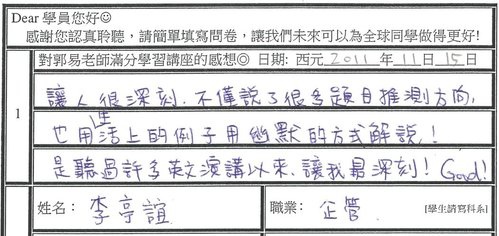 Dear 學員您好☺
感謝您認真聆聽，請簡單填寫問卷，讓我們未來可以為全球同學做得更好!
對郭易老師滿分學習講座的感想◎ 日期: 西元 2011 年 11 日 15 日
1
讓人很深刻，不僅說了很多題目推測方向，
也用生活上的例子用幽默的方式解說，!
是聽過許多英文演講以來，讓我最深刻! Good!
姓名： 李亭誼 職業： 企管 [學生請寫科系]